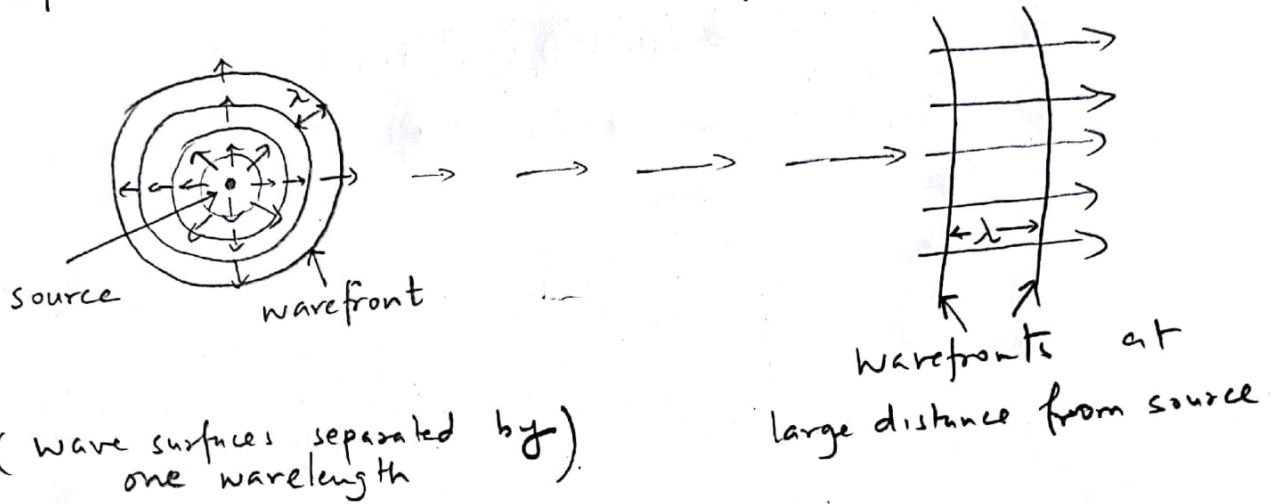 λ
source
wavefront
(wave surfaces separated by)
one wavelength
λ
wavefronts at
large distance from source